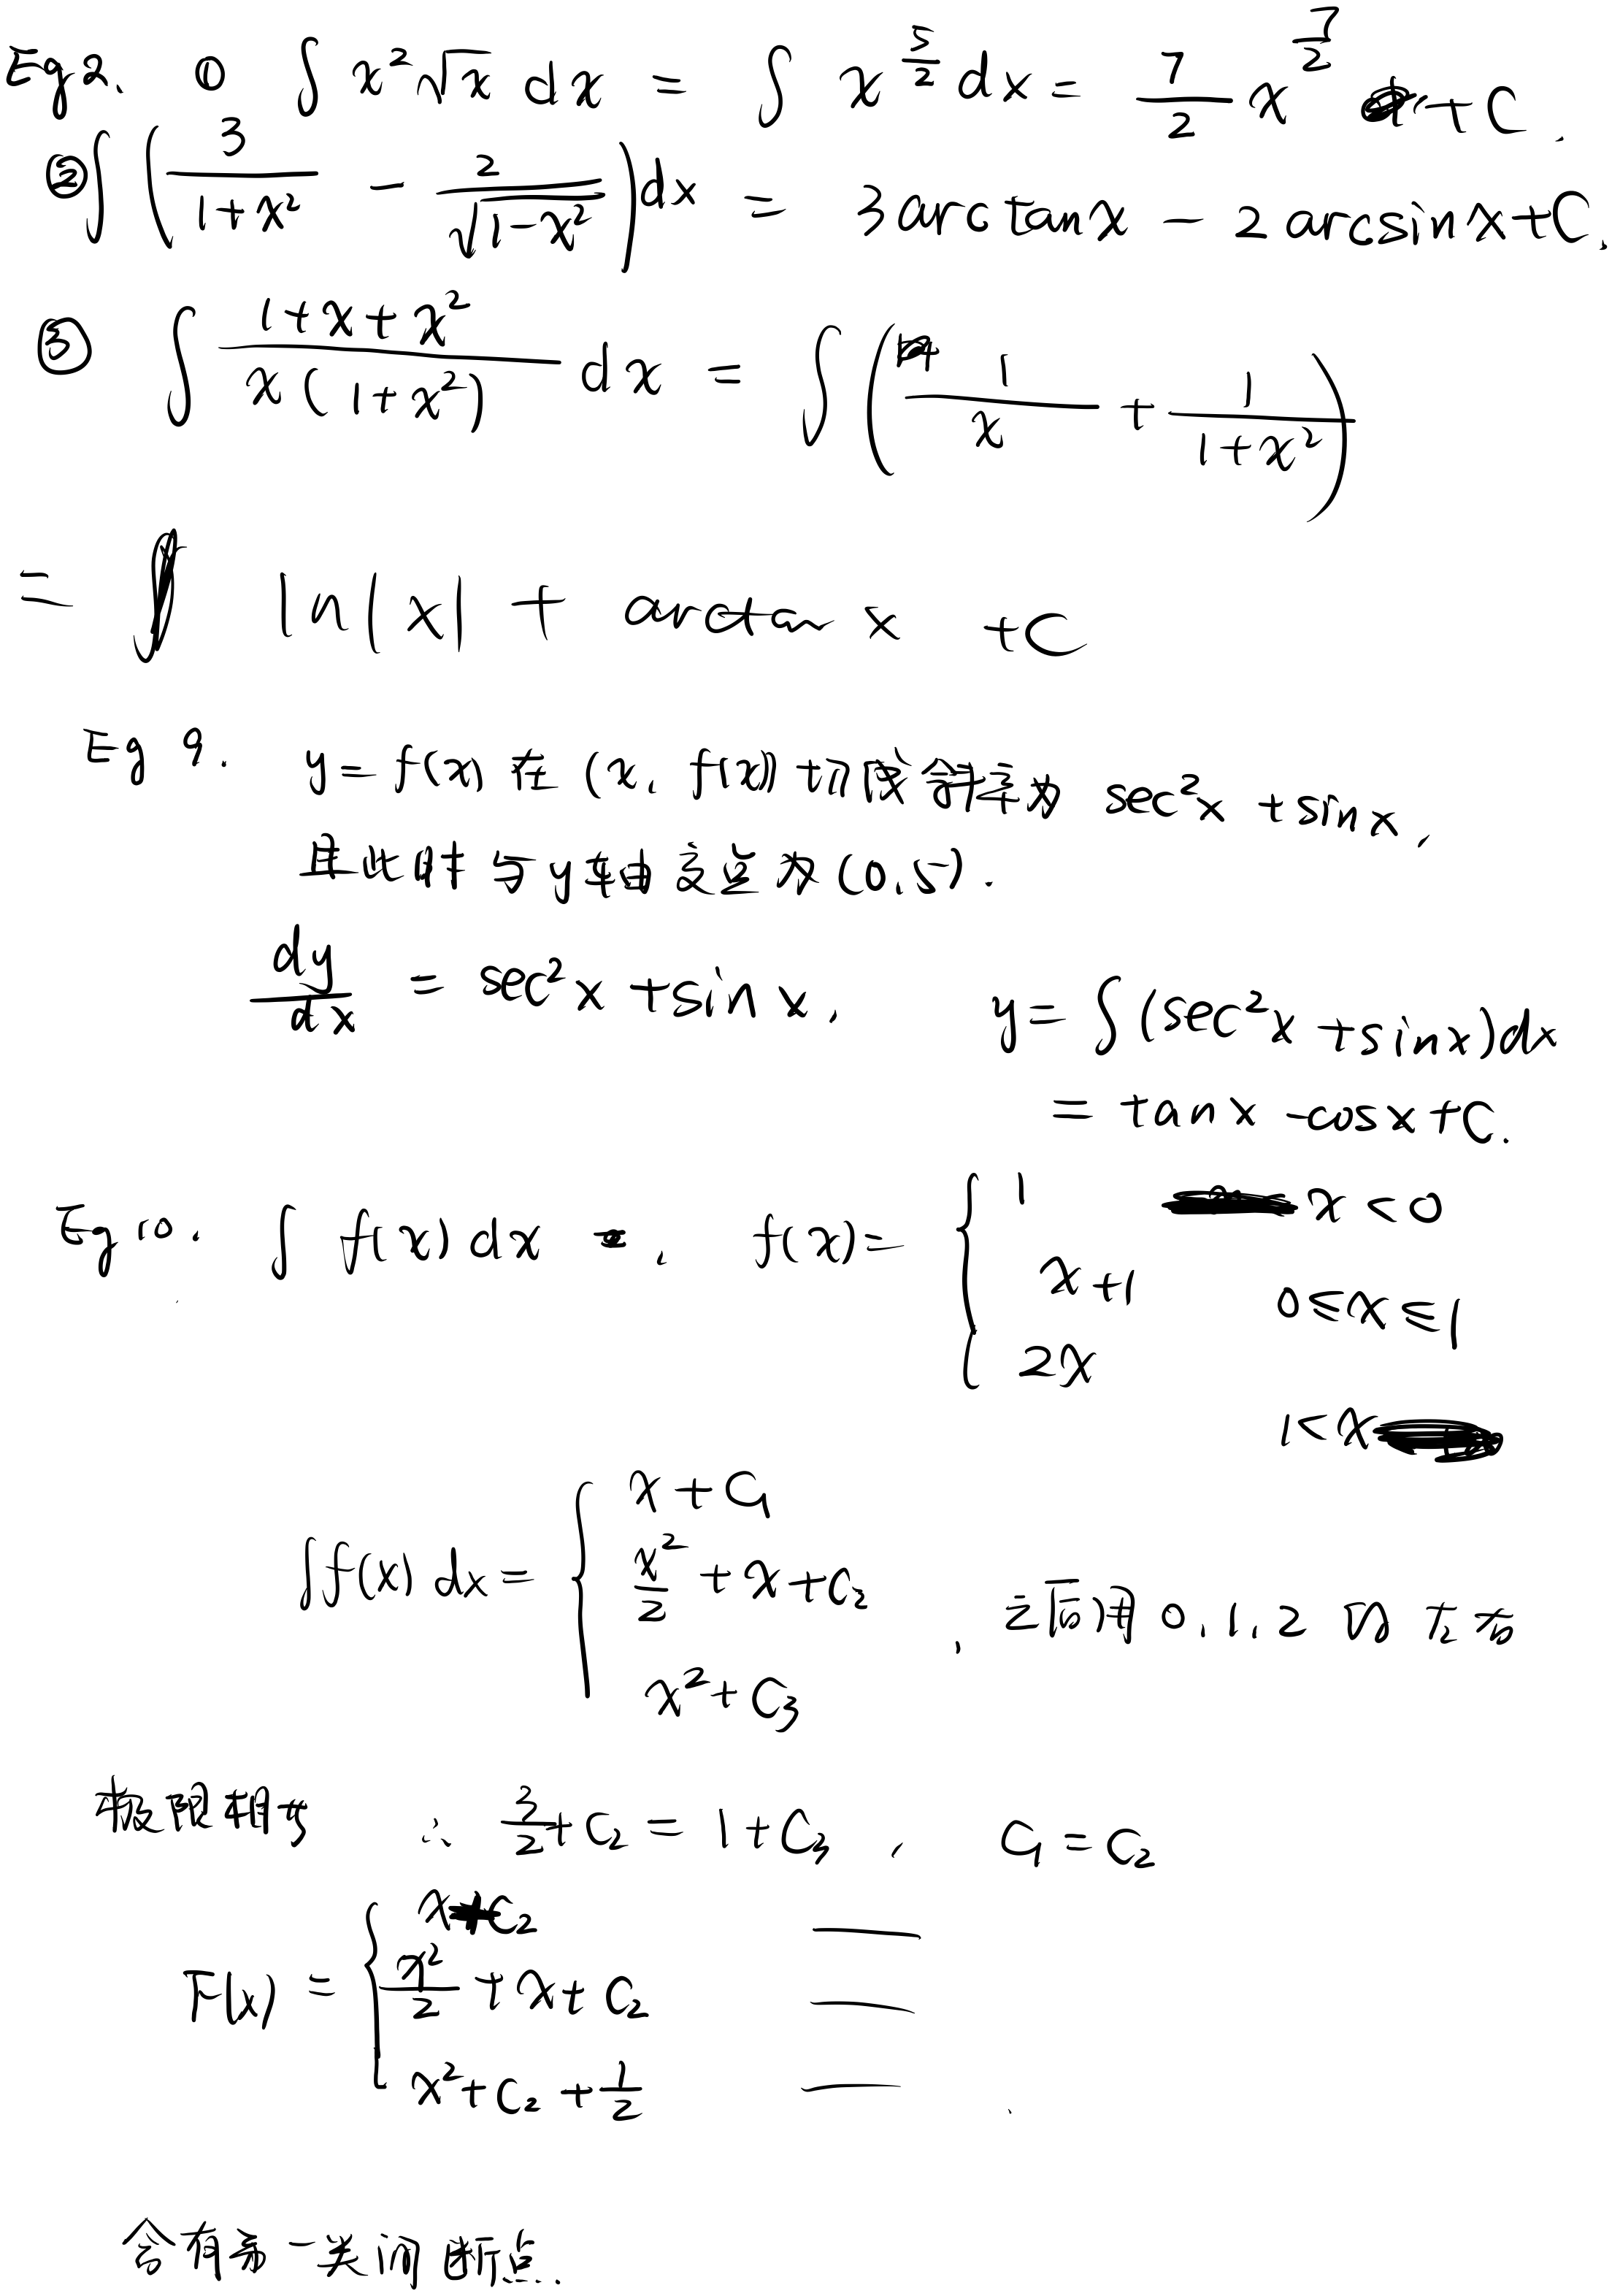 Eg 2. ① ∫ x²√x dx = ∫ x^(5/2) dx = 7/2 x^(7/2) + C.
② ∫ (3/(1+x²) - 2/√(1-x²)) dx = 3 arctan x - 2 arcsin x + C.
③ ∫ (1+x+x²)/(x(1+x²)) dx = ∫ (1/x + 1/(1+x²))
= ln|x| + arctan x + C
Eg 9. y = f(x) 在 (x, f(x)) 切线斜率为 sec²x + sin x,
且此时与y轴交点为(0,5).
dy/dx = sec²x + sin x, y = ∫(sec²x + sin x)dx
= tan x - cos x + C.
Eg 10. ∫ f(x) dx , f(x) = { 1 x < 0
x+1 0 ≤ x ≤ 1
2x
1 < x
∫f(x) dx = { x + C₁
x²/2 + x + C₂ , 之后用 0,1,2 的左右
x² + C₃
极限相等 ∴ 3/2 + C₂ = 1 + C₃ , C₁ = C₂
F(x) = { x + C₂ —
x²/2 + x + C₂ —
x² + C₂ + 1/2 —
含有第一类间断点.